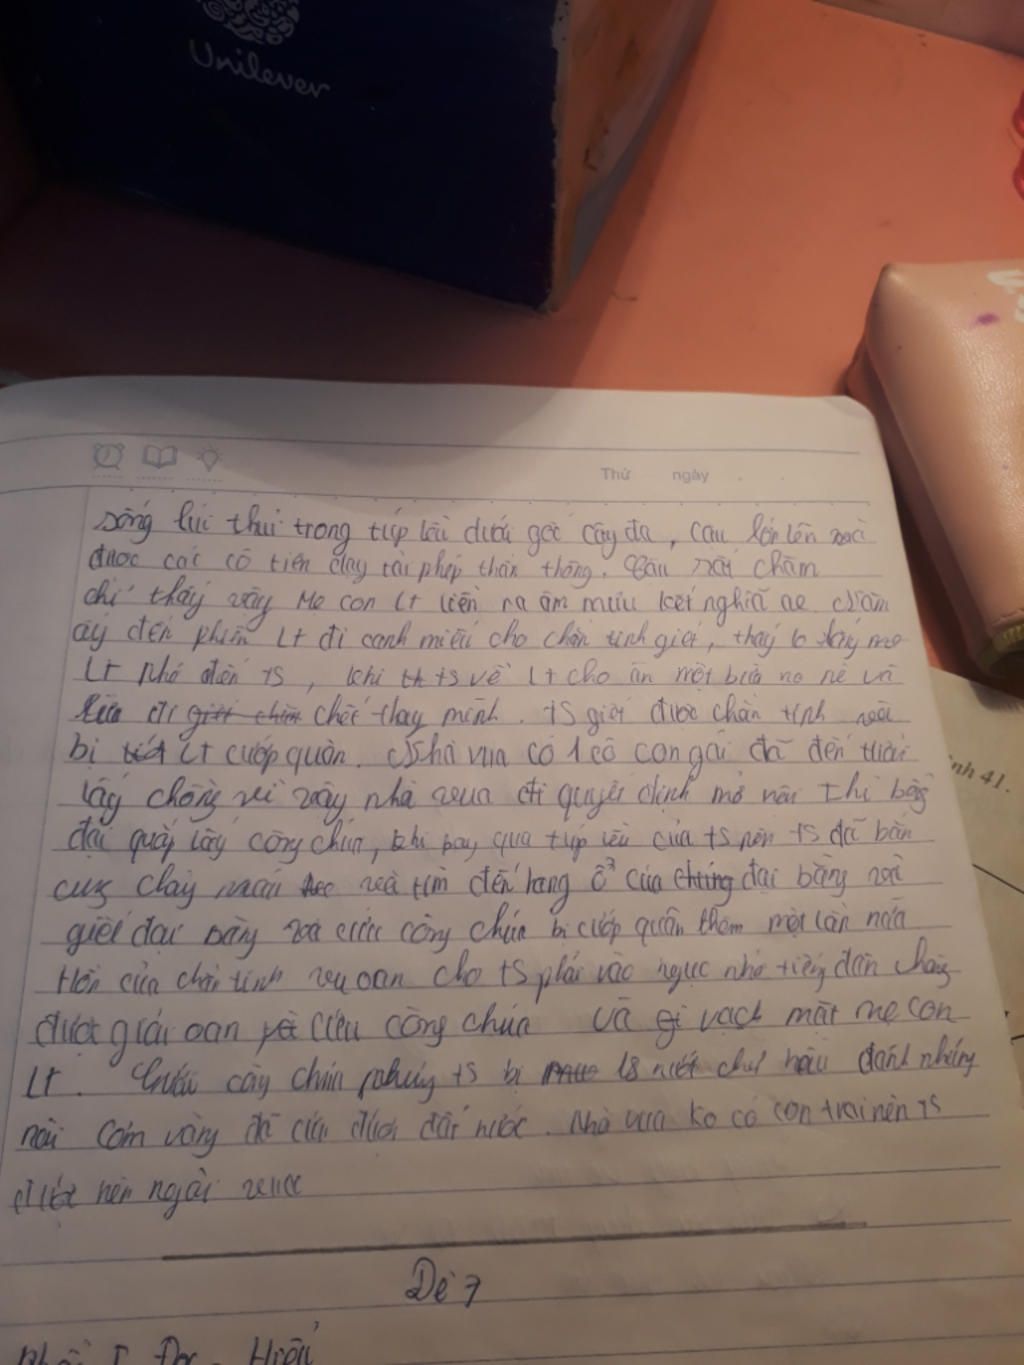 Unilever
Thứ ngày
sống lủi thủi trong túp lều dưới gốc cây đa, cậu lớn lên và
được các cô tiên dạy tài phép thần thông. Cậu rất chăm
chỉ thấy vậy Mẹ con Lt liền ra âm mưu kết nghĩa ae. Năm
ấy đến phiên Lt đi canh miếu cho chằn tinh giết, thấy
Lt nhớ đến ts, khi ts về Lt cho ăn một bữa no nê và
đi chết thay mình. ts giết được chằn tinh và
bị Lt cướp quàn. Nhà vua có 1 cô con gái đã đến tuổi
lấy chồng vì vậy nhà vua đi quyết định mở nên thi bằng
đại quấy lấy công chúa, khi bay qua túp lều của ts nên ts đã bắn
cung chảy máu và tìm đến hang ổ của đại bàng và
giết đại bàng và cứu công chúa bị cướp quần thêm một lần nữa
Hồn của chằn tinh vu oan cho ts phải vào ngục nhờ tiếng đàn chàng
được giải oan cứu công chúa và vạch mặt mẹ con
Lt. Cưới công chúa ts bị 18 nước chư hầu đánh những
nồi cơm vàng đã cứu được đất nước. Nhà vua ko có con trai nên ts
được nên ngài vua
Đề 7
Phần I Đọc - Hiểu
nh 41.